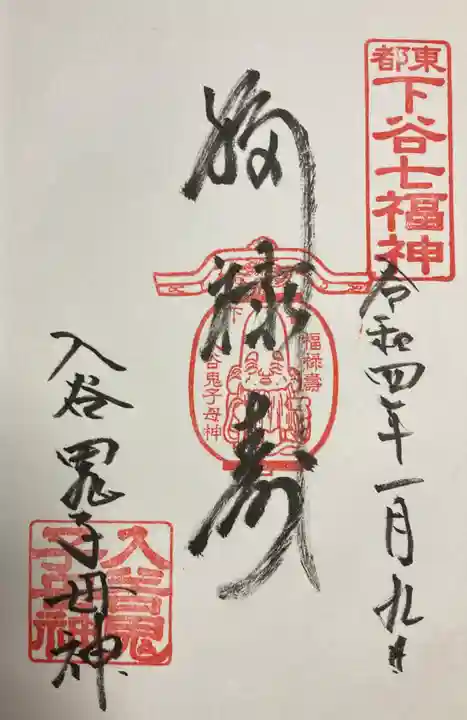 東都
下谷七福神
令和四年一月九日
福禄寿
福禄壽
下谷鬼子母神
入谷鬼子母神
入谷鬼子母神